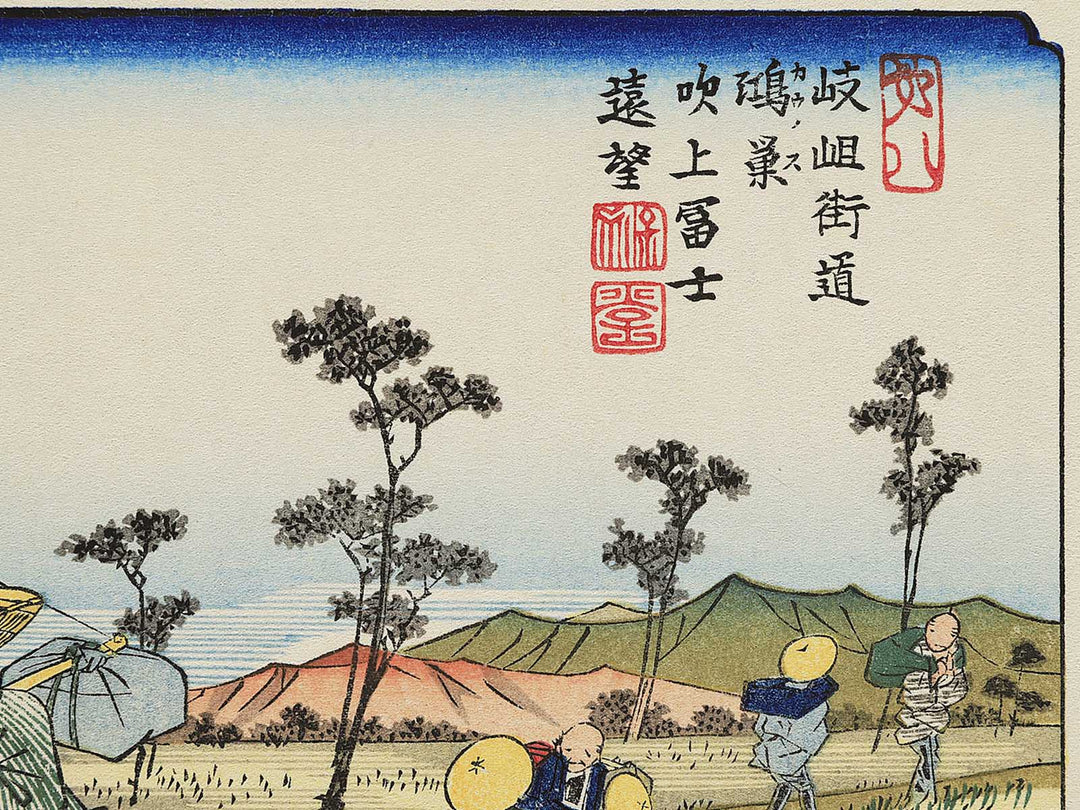 岐岨街道
鴻巣
カウノス
吹上冨士
遠望
保永堂